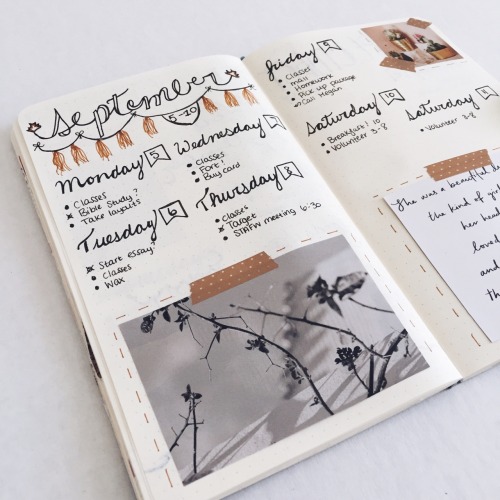 September
5-10
Monday 5
Classes
Bible Study?
Take layouts
Tuesday 6
Start essay
Classes
Wax
Wednesday 7
Classes
Fort!
Buy card
Thursday 8
Classes
Target
STAFW meeting 6:30
Friday 9
Classes
Mail
Homework
Pick up package
Call Megan
Saturday 10
Breakfast! 10
Volunteer 3-8
Saturday
Volunteer 3-8
She was a beautiful
the kind of
her he
loved
and
th